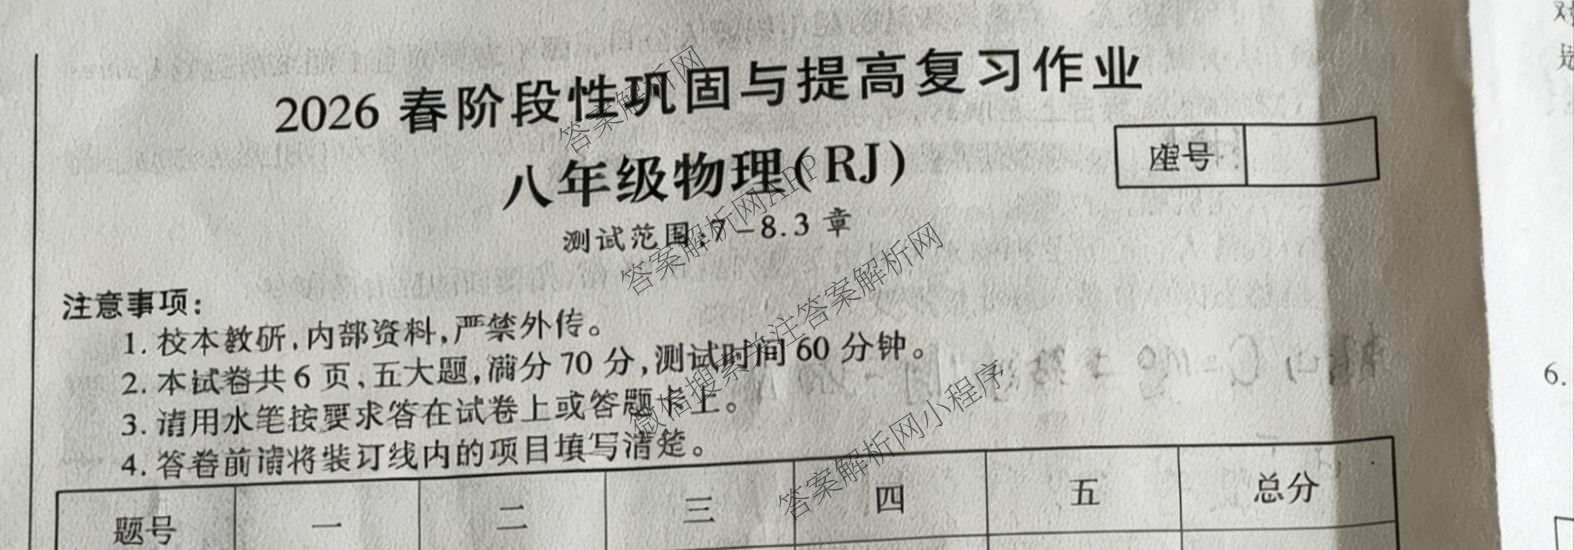 2026 春阶段性巩固与提高复习作业
八年级物理(RJ)
座号
测试范围:7-8.3 章
注意事项:
1. 校本教研,内部资料,严禁外传。
2. 本试卷共 6 页,五大题,满分 70 分,测试时间 60 分钟。
3. 请用水笔按要求答在试卷上或答题卡上。
4. 答卷前请将装订线内的项目填写清楚。
题号 一 二 三 四 五 总分
6.
答案解析网
答案解析网APP
微信搜索关注答案解析网
答案解析网小程序